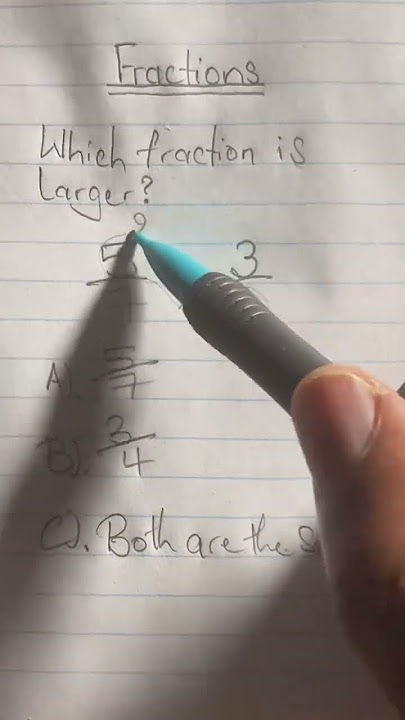 Fractions
Which fraction is
Larger?
5 3
7
A). 5/7
B). 3/4
C). Both are the